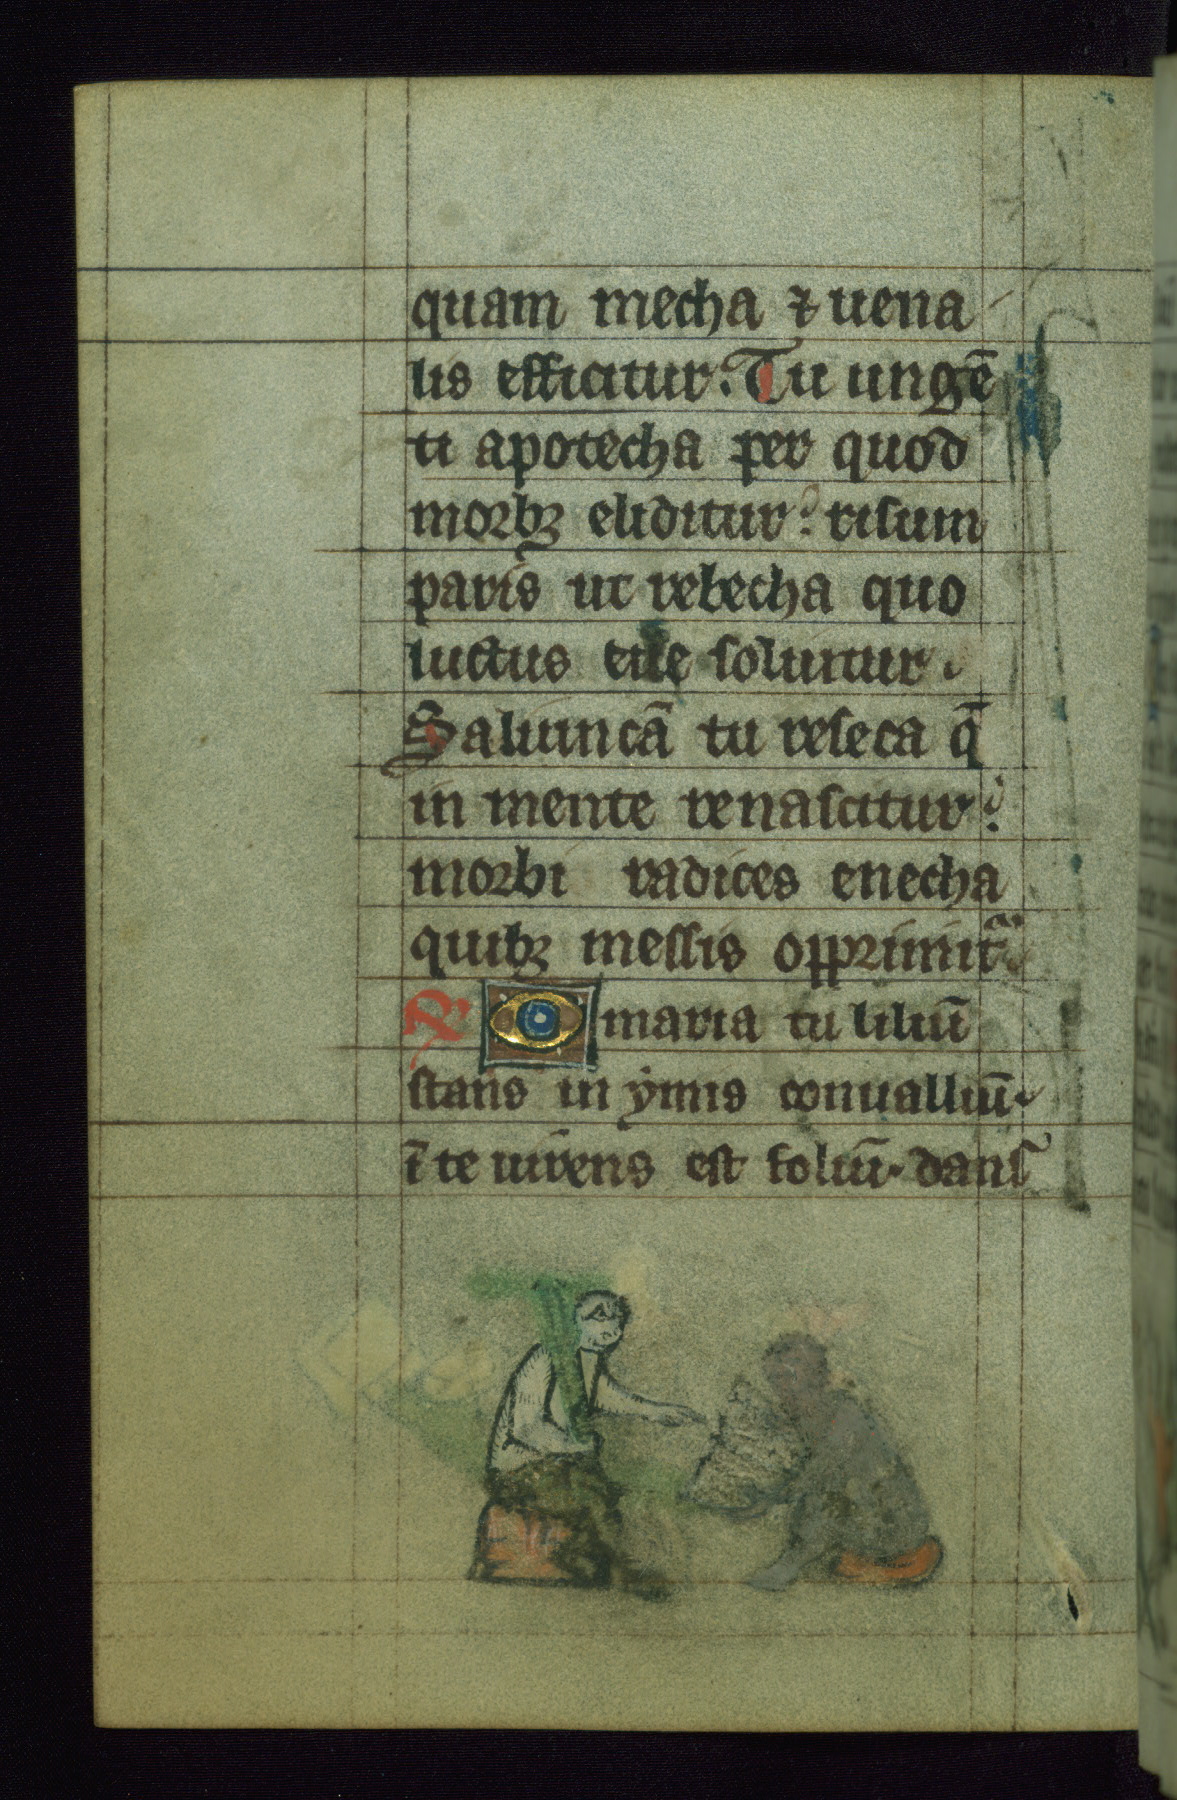 quam mecha ⁊ uena
lis efficitur. Tu ungē
ti apotecha per quod
morbꝫ eliditur: risum
paris ut rebecha quo
luctus ille soluitur.
Saliuncā tu reseca q̄
in mente renascitur:
morbi radices enecha
quibꝫ messis opprimit᷑.
R O maria tu liliū
stans in ymis conualliū.
ī te uirens est foliū. dans